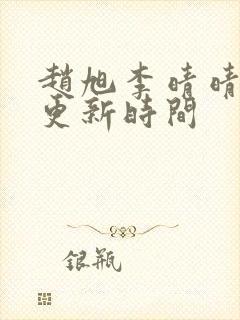 趙旭李晴晴
更新時間
銀瓶